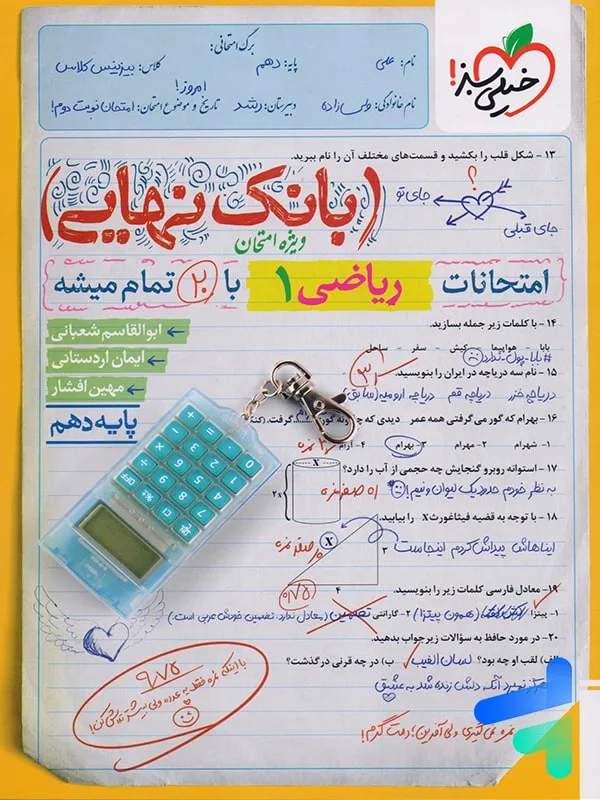 خیلی سبز!
برگ امتحانی:
نام: علی
پایه: دهم
کلاس: بیزینس کلاس
نام خانوادگی: ولی‌زاده
دبیرستان: رشد
تاریخ و موضوع امتحان: امروز! امتحان نوبت دوم!
۱۳ - شکل قلب را بکشید و قسمت‌های مختلف آن را نام ببرید.
؟
جای تو
جای قبلی
(بانک نهایی)
ویژه امتحان
امتحانات ریاضی ۱ با ۲۰ تمام میشه
ابوالقاسم شعبانی
ایمان اردستانی
مهین افشار
پایه دهم
۱۴ - با کلمات زیر جمله بسازید.
بابا - هواپیما - کیش - سفر - ساحل
#بابا-پول-ندارد
۱۵ - نام سه دریاچه در ایران را بنویسید.
دریاچه خزر دریاچه قم دریاچه ارومیه (سابق)
۱۶ - بهرام که گور می‌گرفتی همه عمر دیدی که چگونه گور گرفت.
۱- شهرام ۲- مهرام ۳- بهرام ۴- آرام
۱۷ - استوانه روبرو گنجایش چه حجمی از آب را دارد؟
به نظر خودم حدود یک لیوان و نیم!
x
۲x
۱۸ - با توجه به قضیه فیثاغورث x را بیابید.
ایناهاش پیداش کردم اینجاست
x
۳
۴
صفر نمره
۰/۷۵
۱۹ - معادل فارسی کلمات زیر را بنویسید.
۱- پیتزا: (همون پیتزا) ۲- گارانتی: تضمین (معادل ندارد. تضمین خودش عربی است!)
۲۰ - در مورد حافظ به سؤالات زیر جواب بدهید.
الف) لقب او چه بود؟ لسان الغیب ب) در چه قرنی درگذشت؟
هرگز نمیرد آنکه دلش زنده شد به عشق
۹/۷۵
با اینکه نمره فقط یه عدده ولی بیشتر تلاش کن!
نمره نمی‌گیری ولی آفرین، دمت گرم!